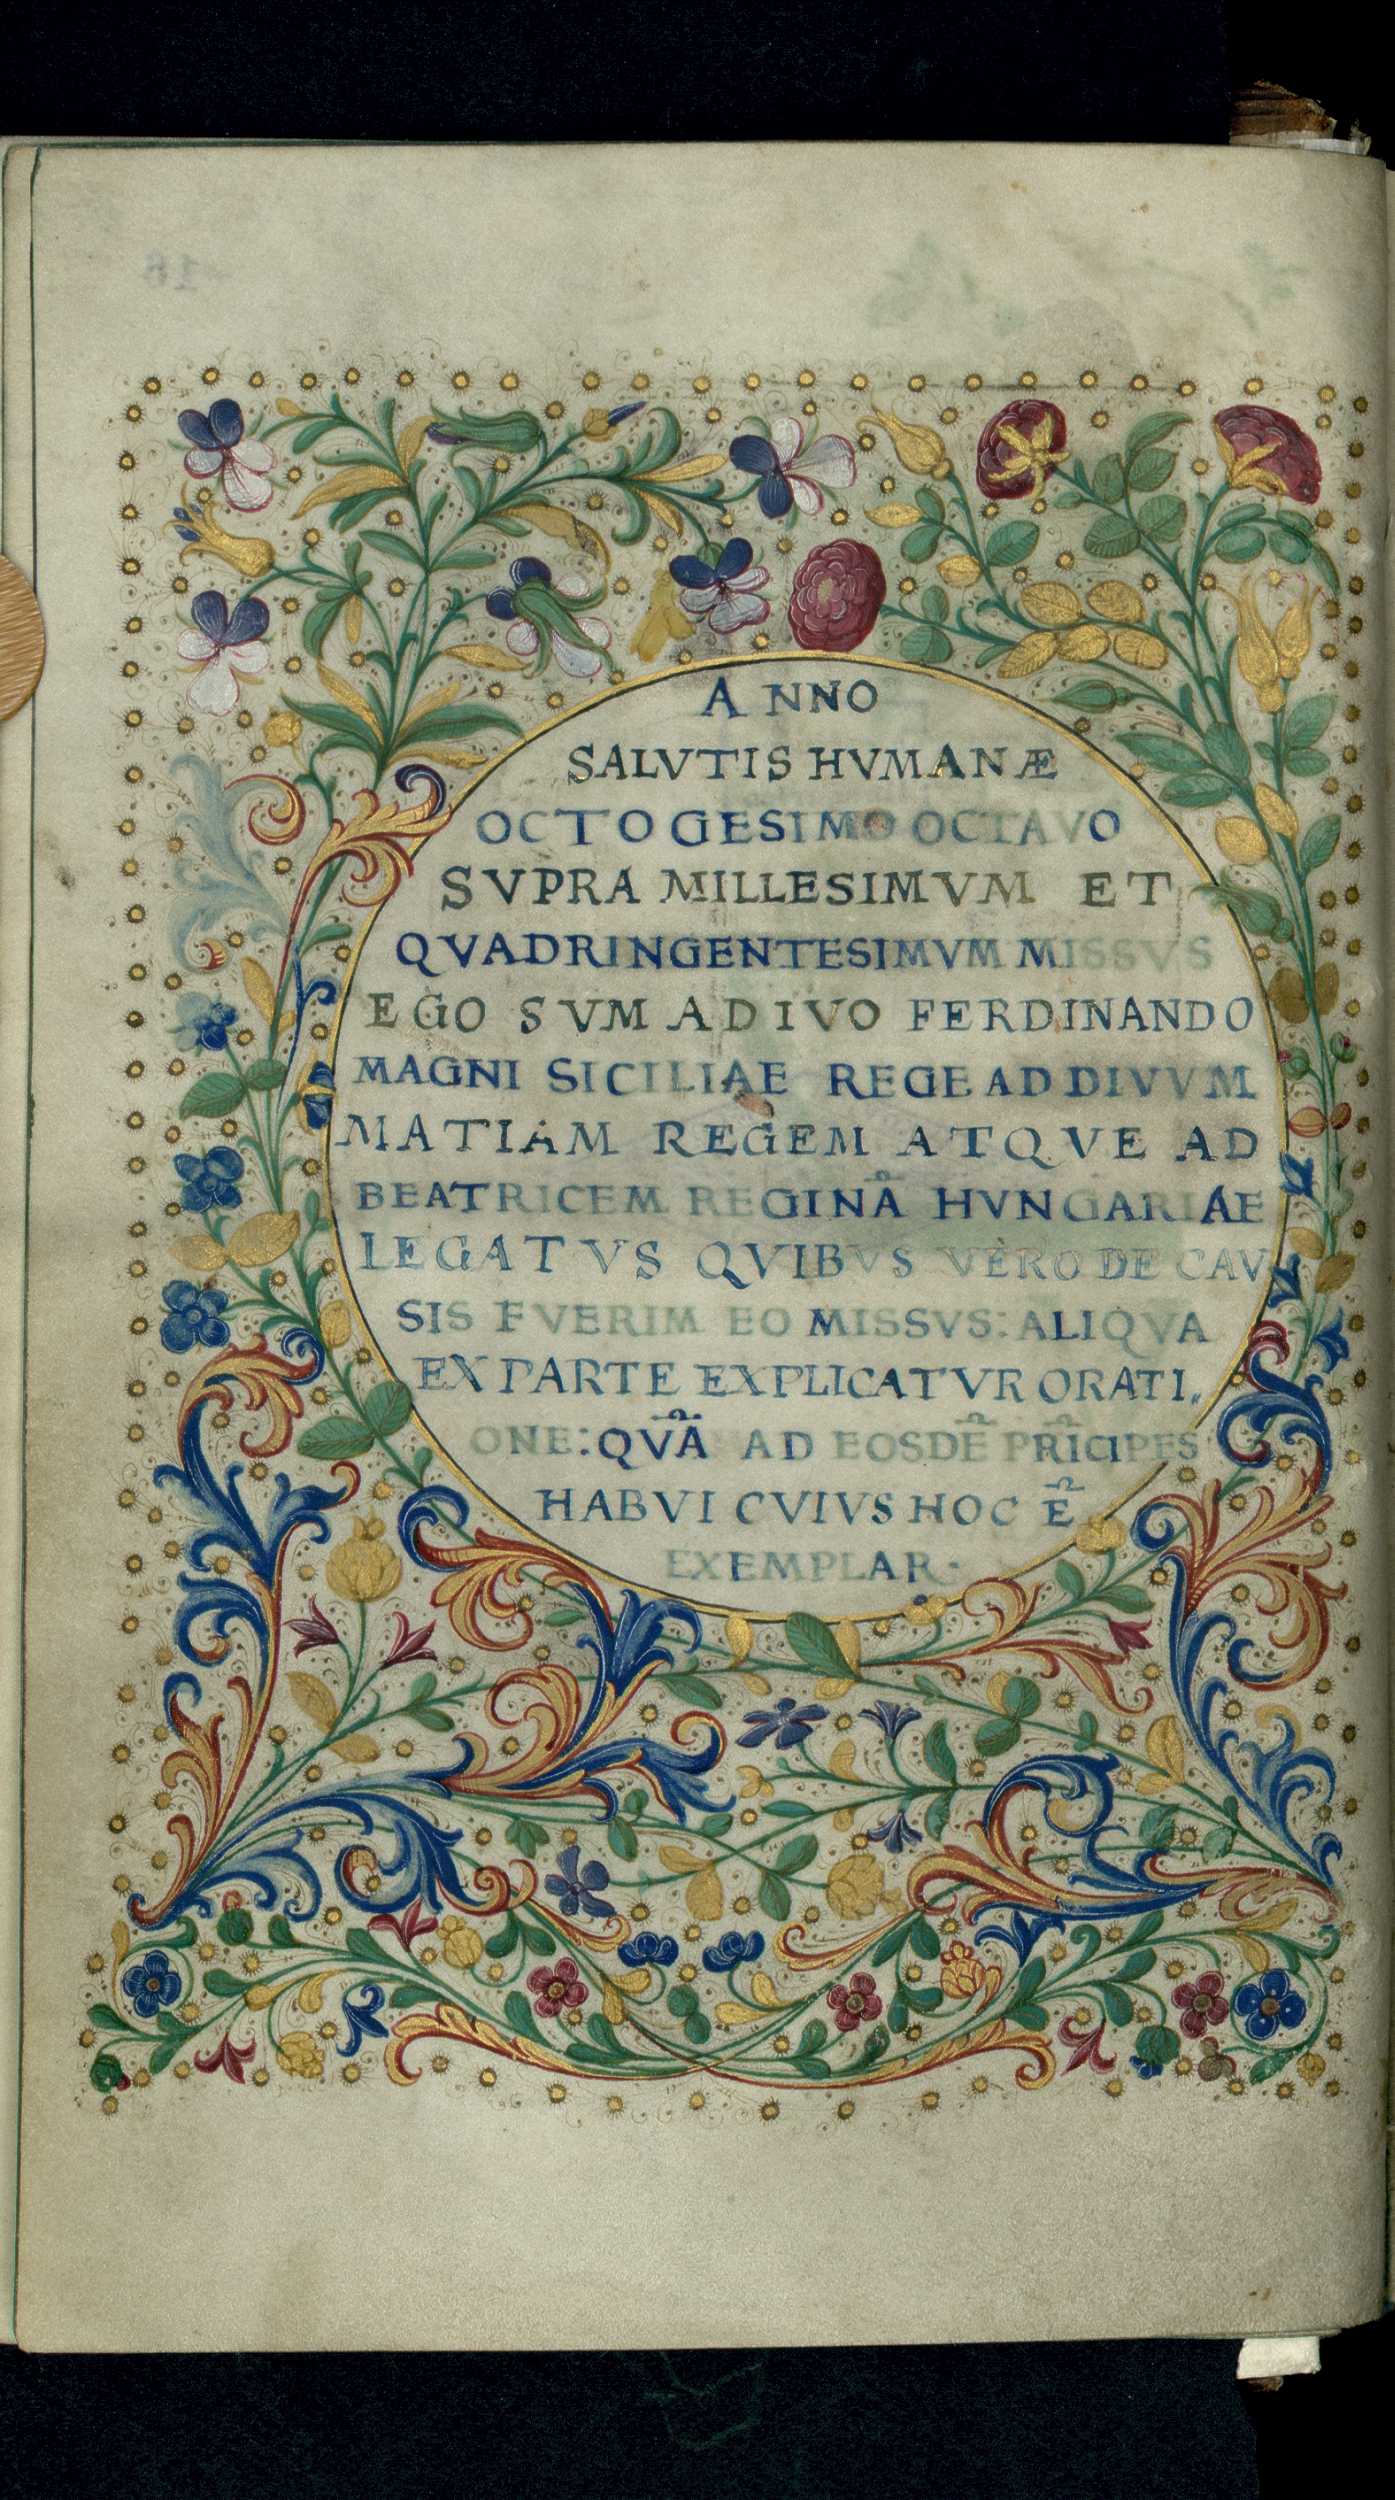 ANNO
SALVTIS HVMANÆ
OCTOGESIMO OCTAVO
SVPRA MILLESIMVM ET
QVADRINGENTESIMVM MISSVS
EGO SVM A DIVO FERDINANDO
MAGNI SICILIAE REGE AD DIVVM
MATIAM REGEM ATQVE AD
BEATRICEM REGINA̅ HVNGARIAE
LEGATVS QVIBVS VERO DE CAV
SIS FVERIM EO MISSVS: ALIQVA
EX PARTE EXPLICATVR ORATI,
ONE: QVA̅ AD EOSDE̅ PRI̅CIPES
HABVI CVIVS HOC E̅
EXEMPLAR·